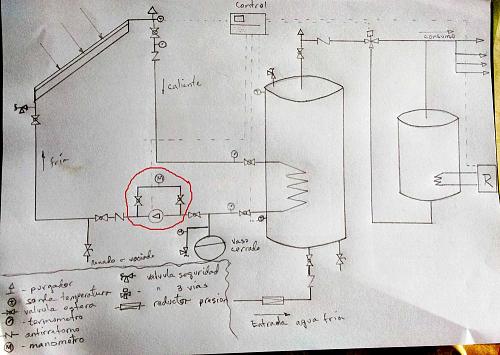 Control
consumo
caliente
fría
M
R
vaso
cerrado
llenado - vaciado
- purgador
- sonda temperatura
- valvula esfera
- termometro
- antirretorno
M - manómetro
valvula seguridad
" 3 vias
reductor presion
Entrada agua fria